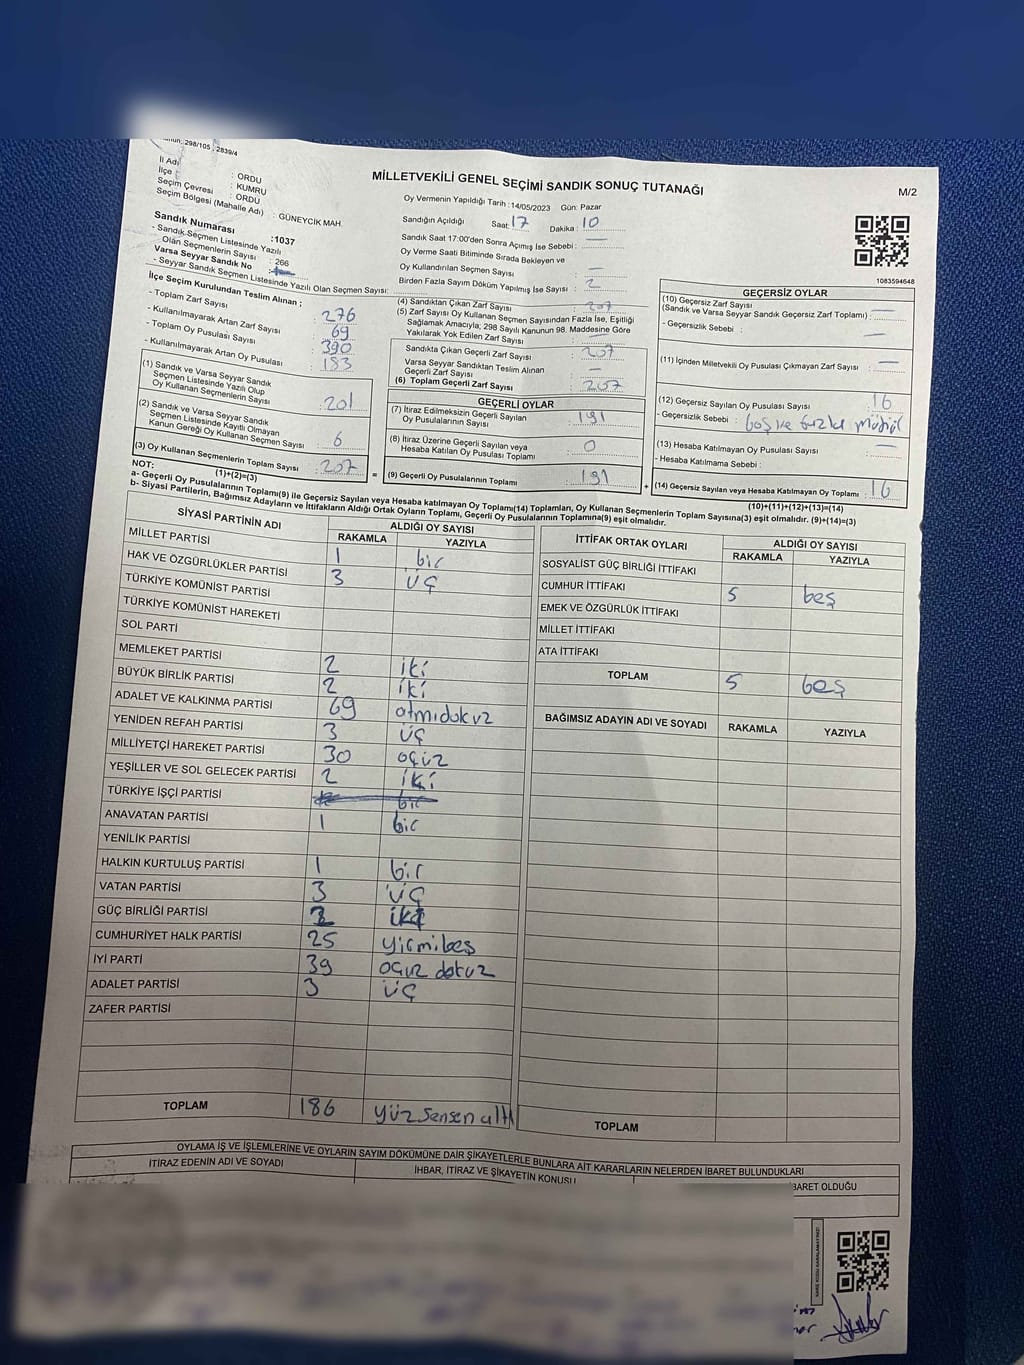 298/105 , 2839/4
İl Adı : ORDU
İlçe : KUMRU
Seçim Çevresi : ORDU
Seçim Bölgesi (Mahalle Adı) : GÜNEYCİK MAH.
MİLLETVEKİLİ GENEL SEÇİMİ SANDIK SONUÇ TUTANAĞI
M/2
Oy Vermenin Yapıldığı Tarih :14/05/2023 Gün: Pazar
Sandığın Açıldığı Saat: 17 Dakika : 10
Sandık Saat 17:00'den Sonra Açımış İse Sebebi : —
Oy Verme Saati Bitiminde Sırada Bekleyen ve
Oy Kullandırılan Seçmen Sayısı : —
Birden Fazla Sayım Döküm Yapılmış İse Sayısı : 2
1083594648
Sandık Numarası :1037
- Sandık Seçmen Listesinde Yazılı
Olan Seçmenlerin Sayısı : 266
Varsa Seyyar Sandık No :
- Seyyar Sandık Seçmen Listesinde Yazılı Olan Seçmen Sayısı:
İlçe Seçim Kurulundan Teslim Alınan ;
- Toplam Zarf Sayısı : 276
- Kullanılmayarak Artan Zarf Sayısı : 69
- Toplam Oy Pusulası Sayısı : 390
- Kullanılmayarak Artan Oy Pusulası : 183
(1) Sandık ve Varsa Seyyar Sandık
Seçmen Listesinde Yazılı Olup
Oy Kullanan Seçmenlerin Sayısı : 201
(2) Sandık ve Varsa Seyyar Sandık
Seçmen Listesinde Kayıtlı Olmayan
Kanun Gereği Oy Kullanan Seçmen Sayısı : 6
(3) Oy Kullanan Seçmenlerin Toplam Sayısı : 207
(1)+(2)=(3)
(4) Sandıktan Çıkan Zarf Sayısı : 207
(5) Zarf Sayısı Oy Kullanan Seçmen Sayısından Fazla İse, Eşitliği
Sağlamak Amacıyla; 298 Sayılı Kanunun 98. Maddesine Göre
Yakılarak Yok Edilen Zarf Sayısı :
Sandıkta Çıkan Geçerli Zarf Sayısı : 207
Varsa Seyyar Sandıktan Teslim Alınan
Geçerli Zarf Sayısı : —
(6) Toplam Geçerli Zarf Sayısı : 207
GEÇERLİ OYLAR
(7) İtiraz Edilmeksizin Geçerli Sayılan
Oy Pusulalarının Sayısı : 191
(8) İtiraz Üzerine Geçerli Sayılan veya
Hesaba Katılan Oy Pusulası Toplamı : 0
= (9) Geçerli Oy Pusulalarının Toplamı : 191
GEÇERSİZ OYLAR
(10) Geçersiz Zarf Sayısı
(Sandık ve Varsa Seyyar Sandık Geçersiz Zarf Toplamı) : —
- Geçersizlik Sebebi : —
(11) İçinden Milletvekili Oy Pusulası Çıkmayan Zarf Sayısı : —
(12) Geçersiz Sayılan Oy Pusulası Sayısı : 16
- Geçersizlik Sebebi : boş ve fazla mühür
(13) Hesaba Katılmayan Oy Pusulası Sayısı : —
- Hesaba Katılmama Sebebi :
+ (14) Geçersiz Sayılan veya Hesaba Katılmayan Oy Toplamı : 16
(10)+(11)+(12)+(13)=(14)
NOT:
a- Geçerli Oy Pusulalarının Toplamı(9) ile Geçersiz Sayılan veya Hesaba katılmayan Oy Toplamı(14) Toplamları, Oy Kullanan Seçmenlerin Toplam Sayısına(3) eşit olmalıdır. (9)+(14)=(3)
b- Siyasi Partilerin, Bağımsız Adayların ve İttifakların Aldığı Ortak Oyların Toplamı, Geçerli Oy Pusulalarının Toplamına(9) eşit olmalıdır.
SİYASİ PARTİNİN ADI ALDIĞI OY SAYISI
RAKAMLA YAZIYLA
MİLLET PARTİSİ 1 bir
HAK VE ÖZGÜRLÜKLER PARTİSİ 3 üç
TÜRKİYE KOMÜNİST PARTİSİ
TÜRKİYE KOMÜNİST HAREKETİ
SOL PARTİ
MEMLEKET PARTİSİ 2 iki
BÜYÜK BİRLİK PARTİSİ 2 iki
ADALET VE KALKINMA PARTİSİ 69 atmıdokuz
YENİDEN REFAH PARTİSİ 3 üç
MİLLİYETÇİ HAREKET PARTİSİ 30 oçuz
YEŞİLLER VE SOL GELECEK PARTİSİ 2 iki
TÜRKİYE İŞÇİ PARTİSİ bir
ANAVATAN PARTİSİ 1 bir
YENİLİK PARTİSİ
HALKIN KURTULUŞ PARTİSİ 1 bir
VATAN PARTİSİ 3 üç
GÜÇ BİRLİĞİ PARTİSİ 2 iki
CUMHURİYET HALK PARTİSİ 25 yirmibeş
İYİ PARTİ 39 oçuz dokuz
ADALET PARTİSİ 3 üç
ZAFER PARTİSİ
TOPLAM 186 yüz sensen altı
İTTİFAK ORTAK OYLARI ALDIĞI OY SAYISI
RAKAMLA YAZIYLA
SOSYALİST GÜÇ BİRLİĞİ İTTİFAKI
CUMHUR İTTİFAKI 5 beş
EMEK VE ÖZGÜRLÜK İTTİFAKI
MİLLET İTTİFAKI
ATA İTTİFAKI
TOPLAM 5 beş
BAĞIMSIZ ADAYIN ADI VE SOYADI RAKAMLA YAZIYLA
TOPLAM
OYLAMA İŞ VE İŞLEMLERİNE VE OYLARIN SAYIM DÖKÜMÜNE DAİR ŞİKAYETLERLE BUNLARA AİT KARARLARIN NELERDEN İBARET BULUNDUKLARI
İTİRAZ EDENİN ADI VE SOYADI İHBAR, İTİRAZ VE ŞİKAYETİN KONUSU BARET OLDUĞU